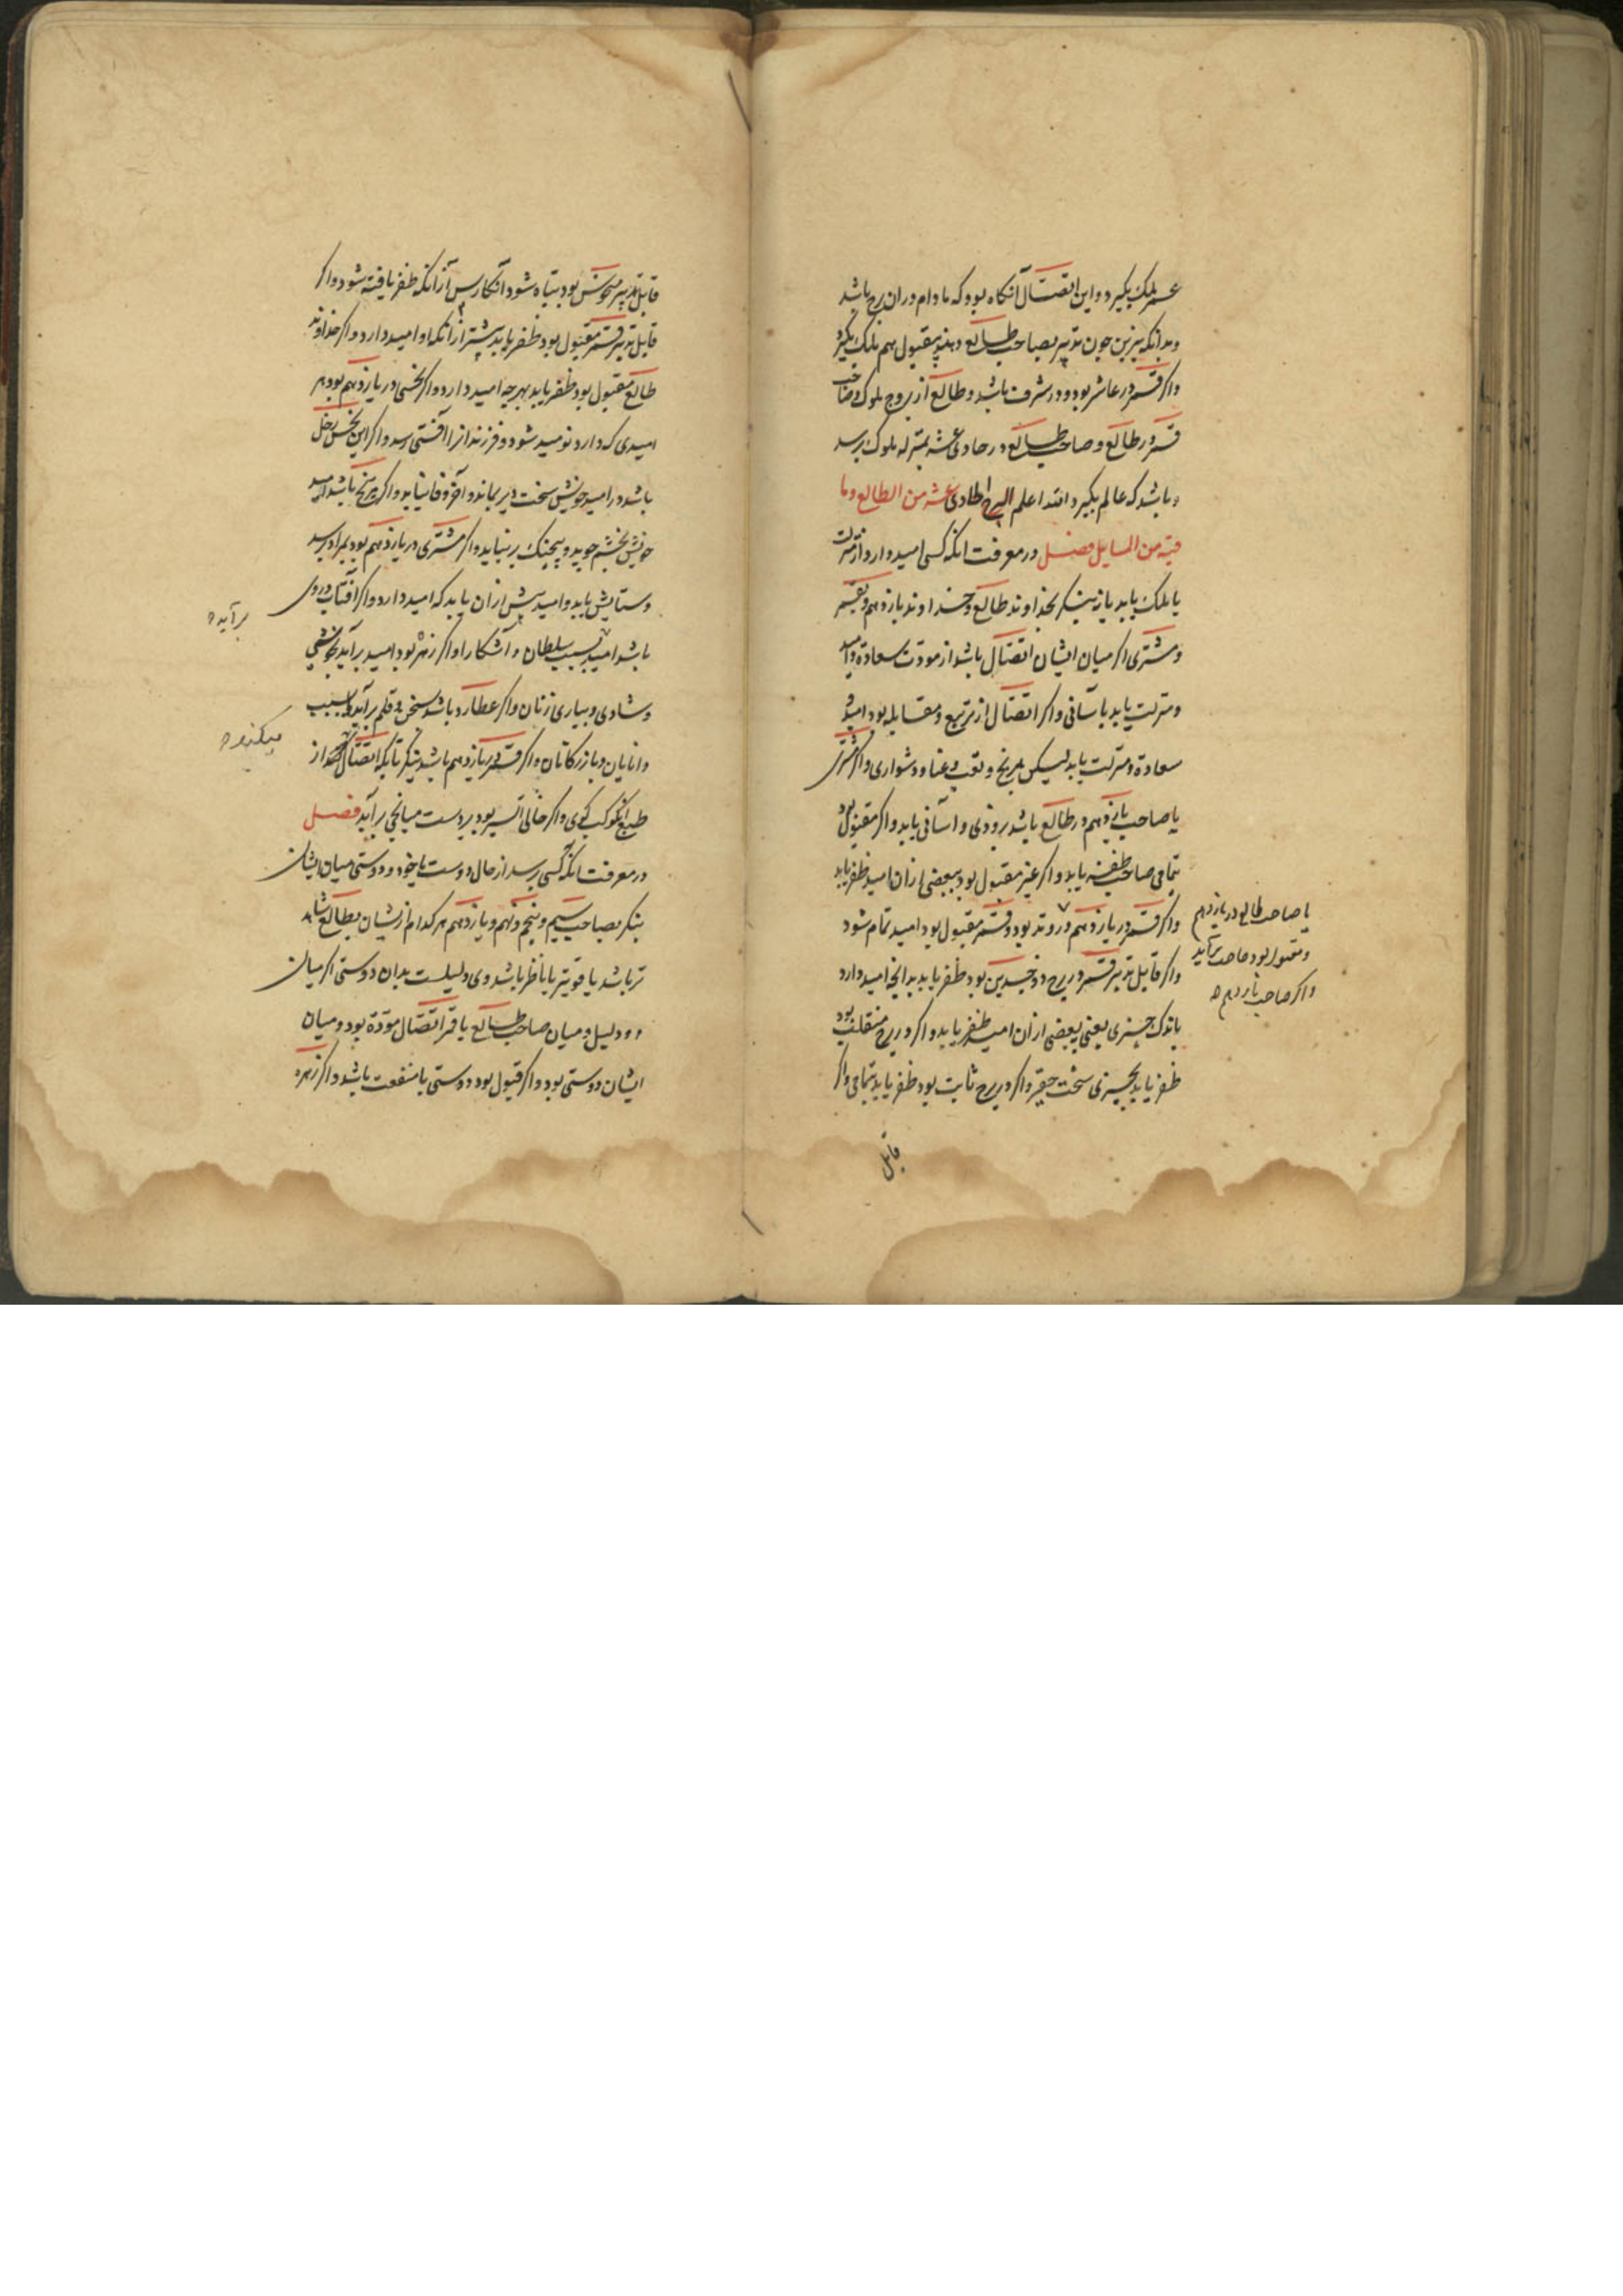 عسر ملک بکیرد و این اتصال آنکاه بود که مادام در ان برج باشد
و بدانکه نیرین چون تدبیر بصاحب طالع دهند مقبول هم ملک بکیرد
واکر قمر در عاشر بود و در شرف باشد و طالع از بروج ملوک و صاحب
قمر در طالع و صاحب طالع در حادی عشر بمنزله ملوک برسد
و باشد که عالم بکیرد و الله اعلم البرج الحادی عشر من الطالع و ما
فیه من المسایل فصل در معرفت انکه کسی امید دارد از منزلت
یا ملک یابد یا نه بنکر بخداوند طالع و خداوند یازدهم و بقمر
و مشتری اکر میان ایشان اتصال باشد از مودت سعادة و امید
و منزلت یابد باسانی واکر اتصال از تربیع و مقابله بود امید
سعادة و منزلت یابد لیکن برنج و تعب و عنا و دشواری واکر مشتری
یا صاحب یازدهم در طالع باشد بزودی و اسانی یابد واکر مقبول بود
بتمامی صاحب ظفر یابد واکر غیر مقبول بود ببعضی ازان امید ظفر یابد
واکر قمر در یازدهم و در وتد بود و قمر مقبول بود امید تمام شود
واکر قابل تدبیر قمر در برج ذو جسدین بود ظفر یابد بدانچه امید دارد
باندک چیزی یعنی ببعضی ازان امید ظفر یابد واکر در برج منقلب بود
ظفر یابد بچیزی سخت حقیر واکر در برج ثابت بود ظفر یابد بتمامی واکر
یا صاحب طالع در یازدهم
و مقبول بود حاجت برآید
واکر صاحب یازدهم
قابل
قابل تدبیر منحوس بود تباه شود انکار پس ازانکه ظفر یافته شود واکر
قابل تدبیر قمر مقبول بود ظفر یابد بیشتر ازانکه او امید دارد واکر خداوند
طالع مقبول بود ظفر یابد بهر چه امید دارد واکر نحسی در یازدهم بود هر
امیدی که دارد نومید شود و فرزندانرا آفتی رسد واکر این نحس زحل
باشد در امید خویش سخت دیر بماند و آخر وفا نیابد واکر مریخ باشد امید
خویش بخشم جوید و بجنک و نیابد واکر مشتری در یازدهم بود بمراد برسد
و ستایش یابد و امید بیش ازان یابد که امید دارد واکر آفتاب در وی
باشد امید بسبب سلطان و آشکارا واکر زهره بود امید برآید بخوشی
و شادی و بیاری زنان واکر عطارد باشد بسخن و قلم برآید و بسبب
دانایان و بازرکانان واکر قمر در یازدهم باشد بنکر تا بکه اتصال از
طبع آن کوکب کوی واکر خالی السیر بود بر دست میانجی برآید فصل
در معرفت انکه کسی پرسد از حال دوست با خود و دوستی میان ایشان
بنکر بصاحب سیم و پنجم و نهم و یازدهم هر کدام از ایشان بطالع شاهد
تر باشد یا قویتر یا ناظر باشد وی دلیلست بدان دوستی اکر میان
دو دلیل و میان صاحب طالع یا قمر اتصال مودّة بود و میان
ایشان دوستی بود واکر قبول بود دوستی با منفعت باشد واکر زهره
برآید
میکند